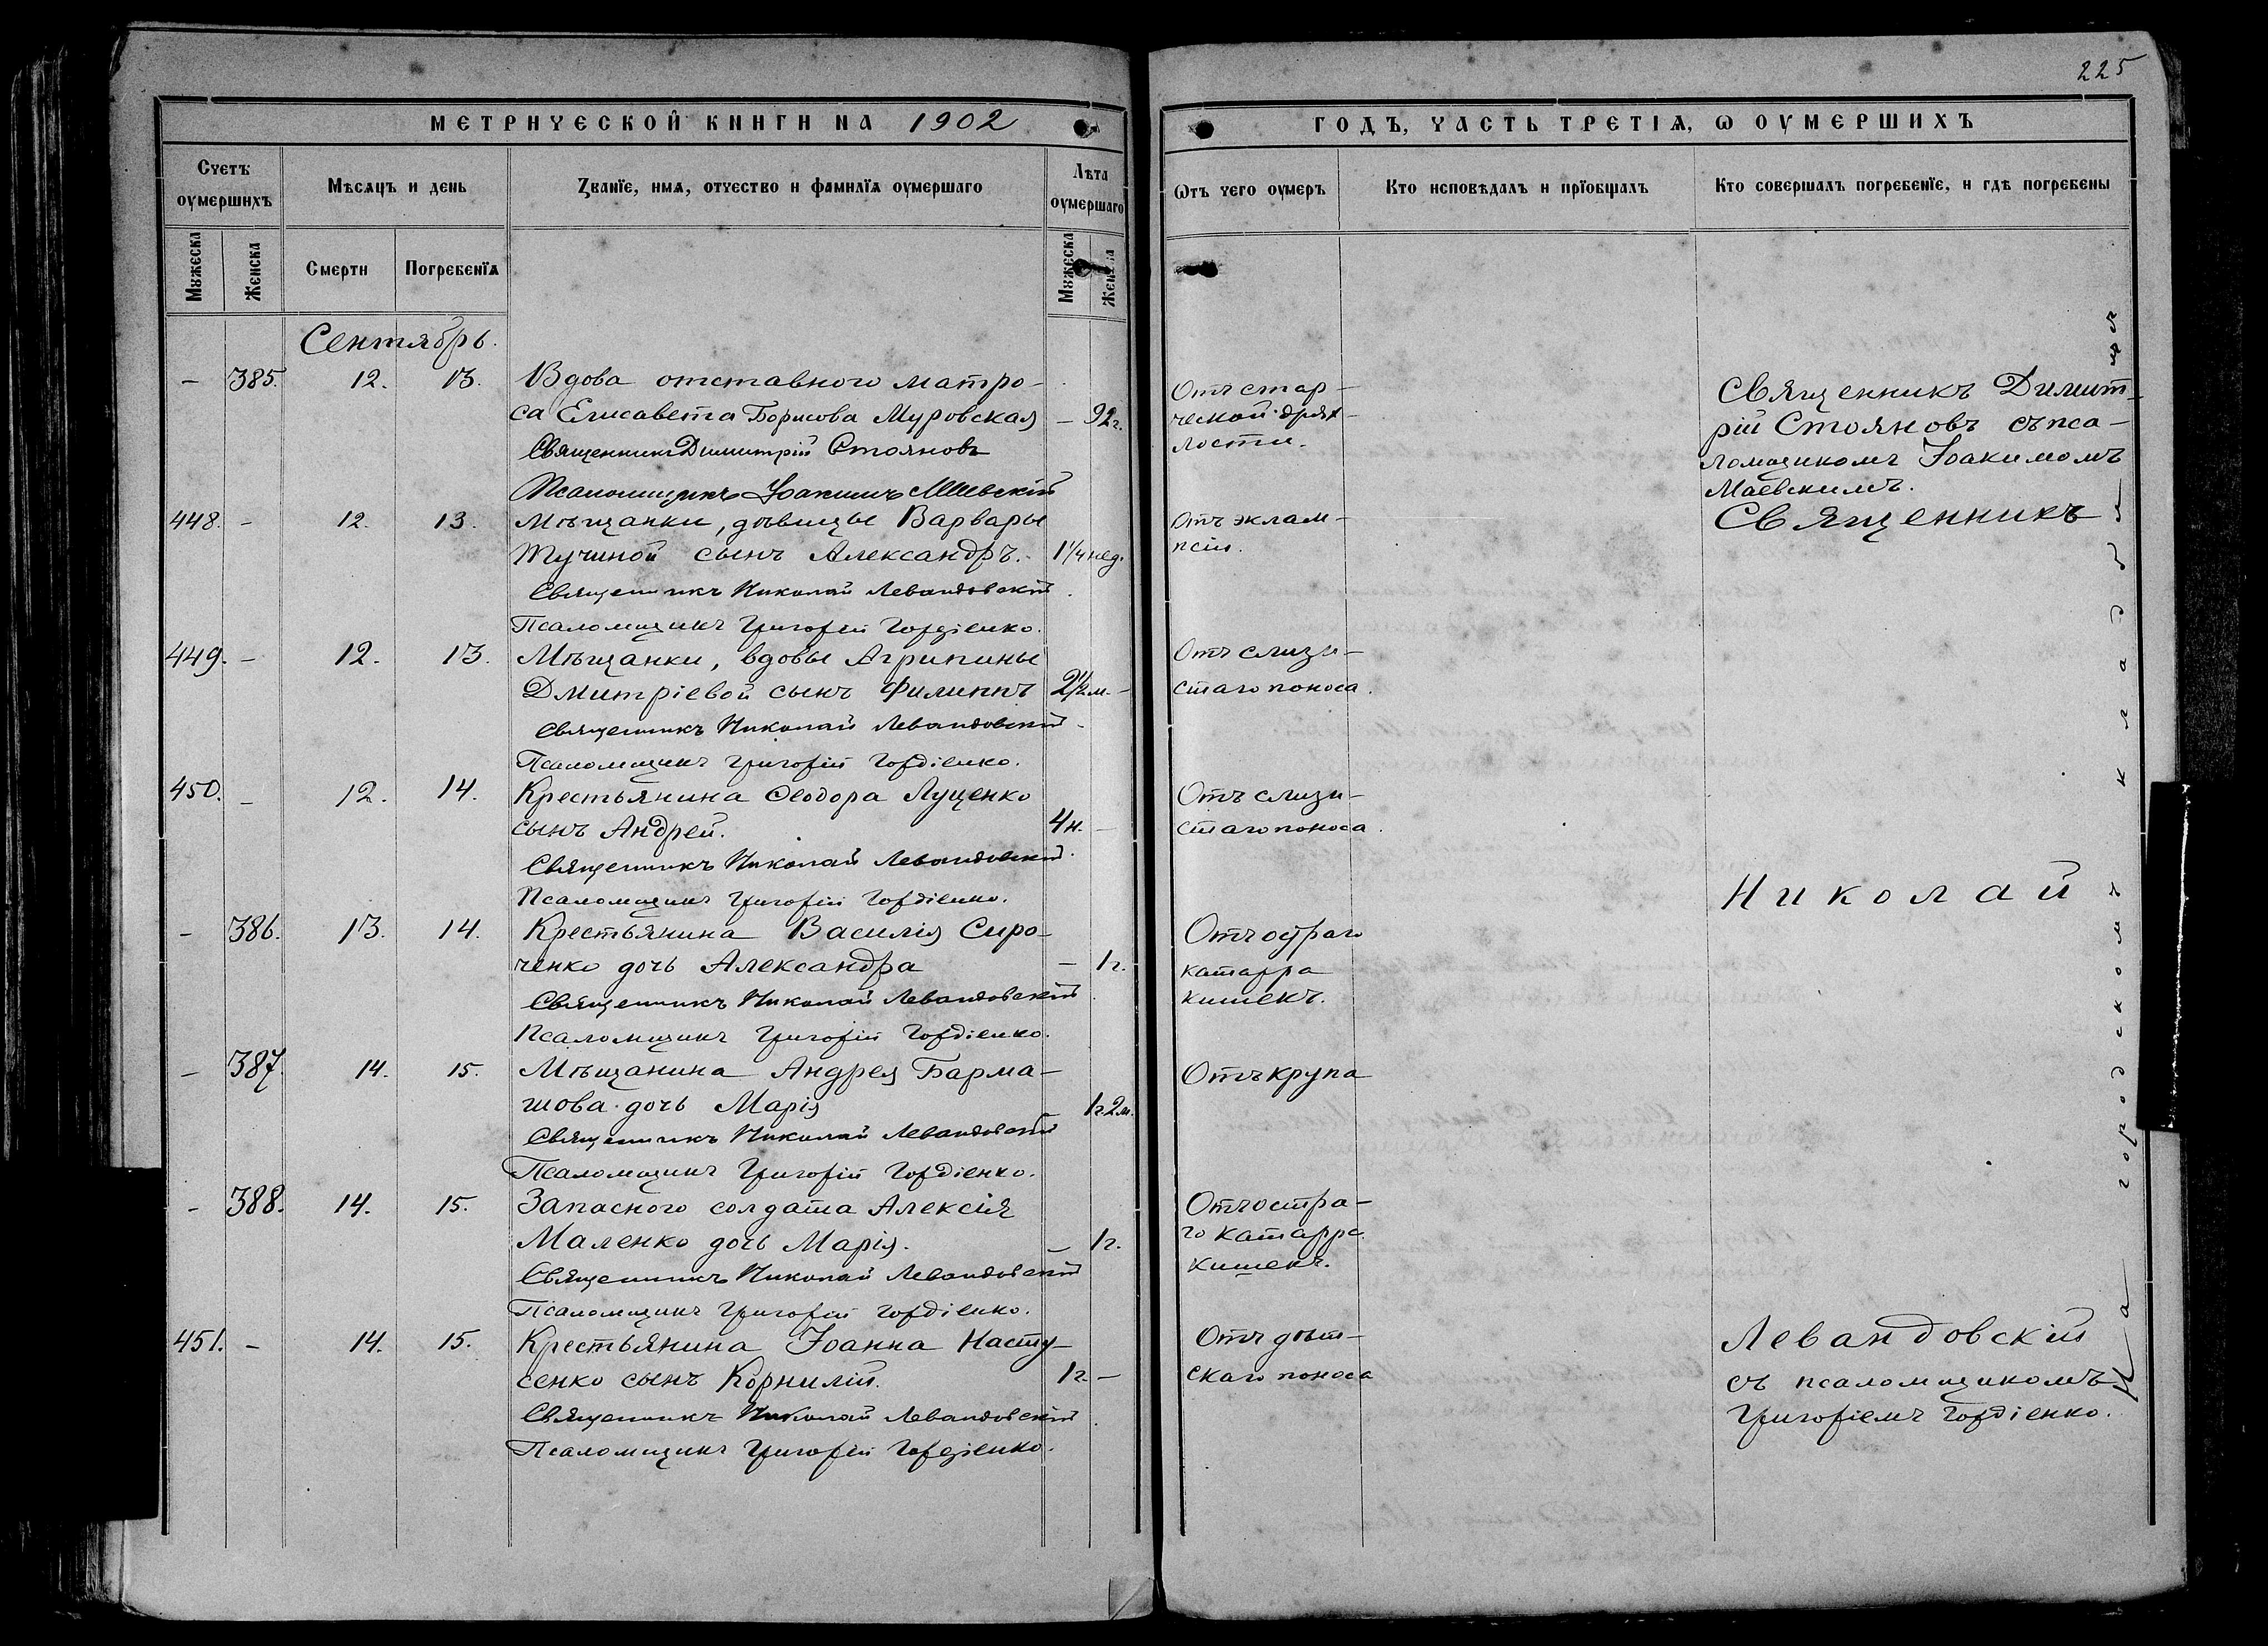 225
МЕТРИЧЕСКОЙ КНИГИ НА 1902
ГОДЪ, ЧАСТЬ ТРЕТІѦ, Ѡ ОУМЕРШИХЪ
Счетъ оумершихъ
Мѣсяцъ и день
Званїе, имѧ, отчество и фамилїѧ оумершаго
Лѣта оумершаго
Ѿтъ чего оумеръ
Кто исповѣдалъ и прїобщалъ
Кто совершалъ погребенїе, и гдѣ погребены
Мꙋжеска
Женска
Смерти
Погребенїѧ
Мꙋжеска
Женска
Сентябрь.
– 385. 12. 13. Вдова отставного матро-
са Елисавета Борисова Муровская – 92 г.
Священникъ Димитрій Стояновъ
Псаломщикъ Іоакимъ Маевскій
Отъ стар-
ческой дрях-
лости.
Священникъ Димит-
рій Стояновъ съ пса-
ломщикомъ Іоакимомъ
Маевскимъ.
448. – 12. 13. Мѣщанки, дѣвицы Варвары
Тучиной сынъ Александръ. 1¼ нед.
Священникъ Николай Левандовскій
Псаломщикъ Григорій Гордіенко.
Отъ эклам-
псіи.
Священникъ
449. – 12. 13. Мѣщанки, вдовы Агрипины
Дмитріевой сынъ Филиппъ 2½ м. –
Священникъ Николай Левандовскій
Псаломщикъ Григорій Гордіенко.
Отъ слизи-
стаго поноса.
450. – 12. 14. Крестьянина Ѳеодора Луценко
сынъ Андрей. 4 н. –
Священникъ Николай Левандовскій.
Псаломщикъ Григорій Гордіенко.
Отъ слизи-
стаго поноса.
Николай
– 386. 13. 14. Крестьянина Василія Сиро-
ченко дочь Александра – 1 г.
Священникъ Николай Левандовскій
Псаломщикъ Григорій Гордіенко.
Отъ остраго
катарра
кишекъ.
– 387. 14. 15. Мѣщанина Андрея Барма-
шова дочь Марія – 1 г. 2 м.
Священникъ Николай Левандовскій
Псаломщикъ Григорій Гордіенко.
Отъ крупа
– 388. 14. 15. Запасного солдата Алексія
Маленко дочь Марія. – 1 г.
Священникъ Николай Левандовскій
Псаломщикъ Григорій Гордіенко.
Отъ остра-
го катарра
кишекъ.
451. – 14. 15. Крестьянина Іоанна Насту-
сенко сынъ Корнилій. 1 г. –
Священникъ Николай Левандовскій
Псаломщикъ Григорій Гордіенко.
Отъ дѣт-
скаго поноса
Левандовскій
съ псаломщикомъ
Григоріемъ Гордіенко.
На городскомъ кладбищѣ